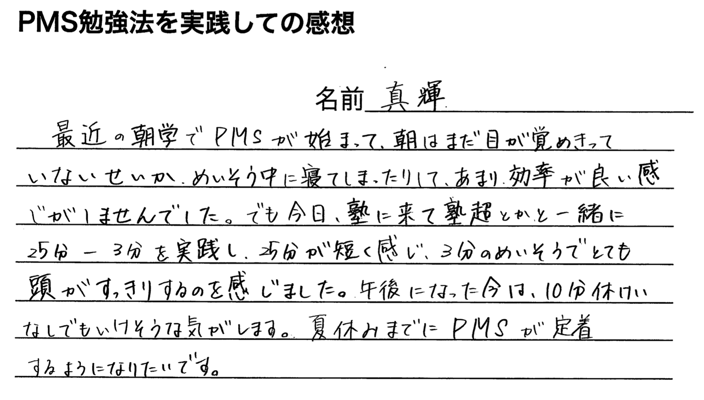 PMS勉強法を実践しての感想
名前 真輝
最近の朝学でPMSが始まって、朝はまだ目が覚めきって
いないせいか、めいそう中に寝てしまったりして、あまり効率が良い感
じがしませんでした。でも今日、塾に来て塾超とかと一緒に
25分－3分を実践し、25分が短く感じ、3分のめいそうでとても
頭がすっきりするのを感じました。午後になった今は、10分休けい
なしでもいけそうな気がします。夏休みまでにPMSが定着
するようになりたいです。